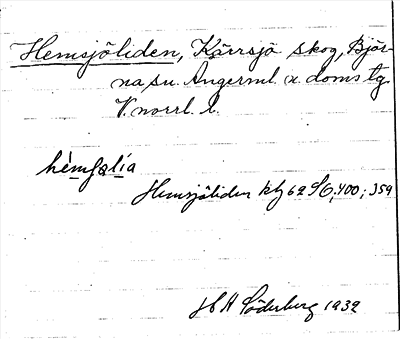 Hemsjöliden, Kärrsjö skog, Björ-
na sn. Ångerml. v. doms tg.
V. norrl. l.
hèmʃølía
Hemsjöliden kbl 62 SG; 400; 359
H H Söderberg 1932